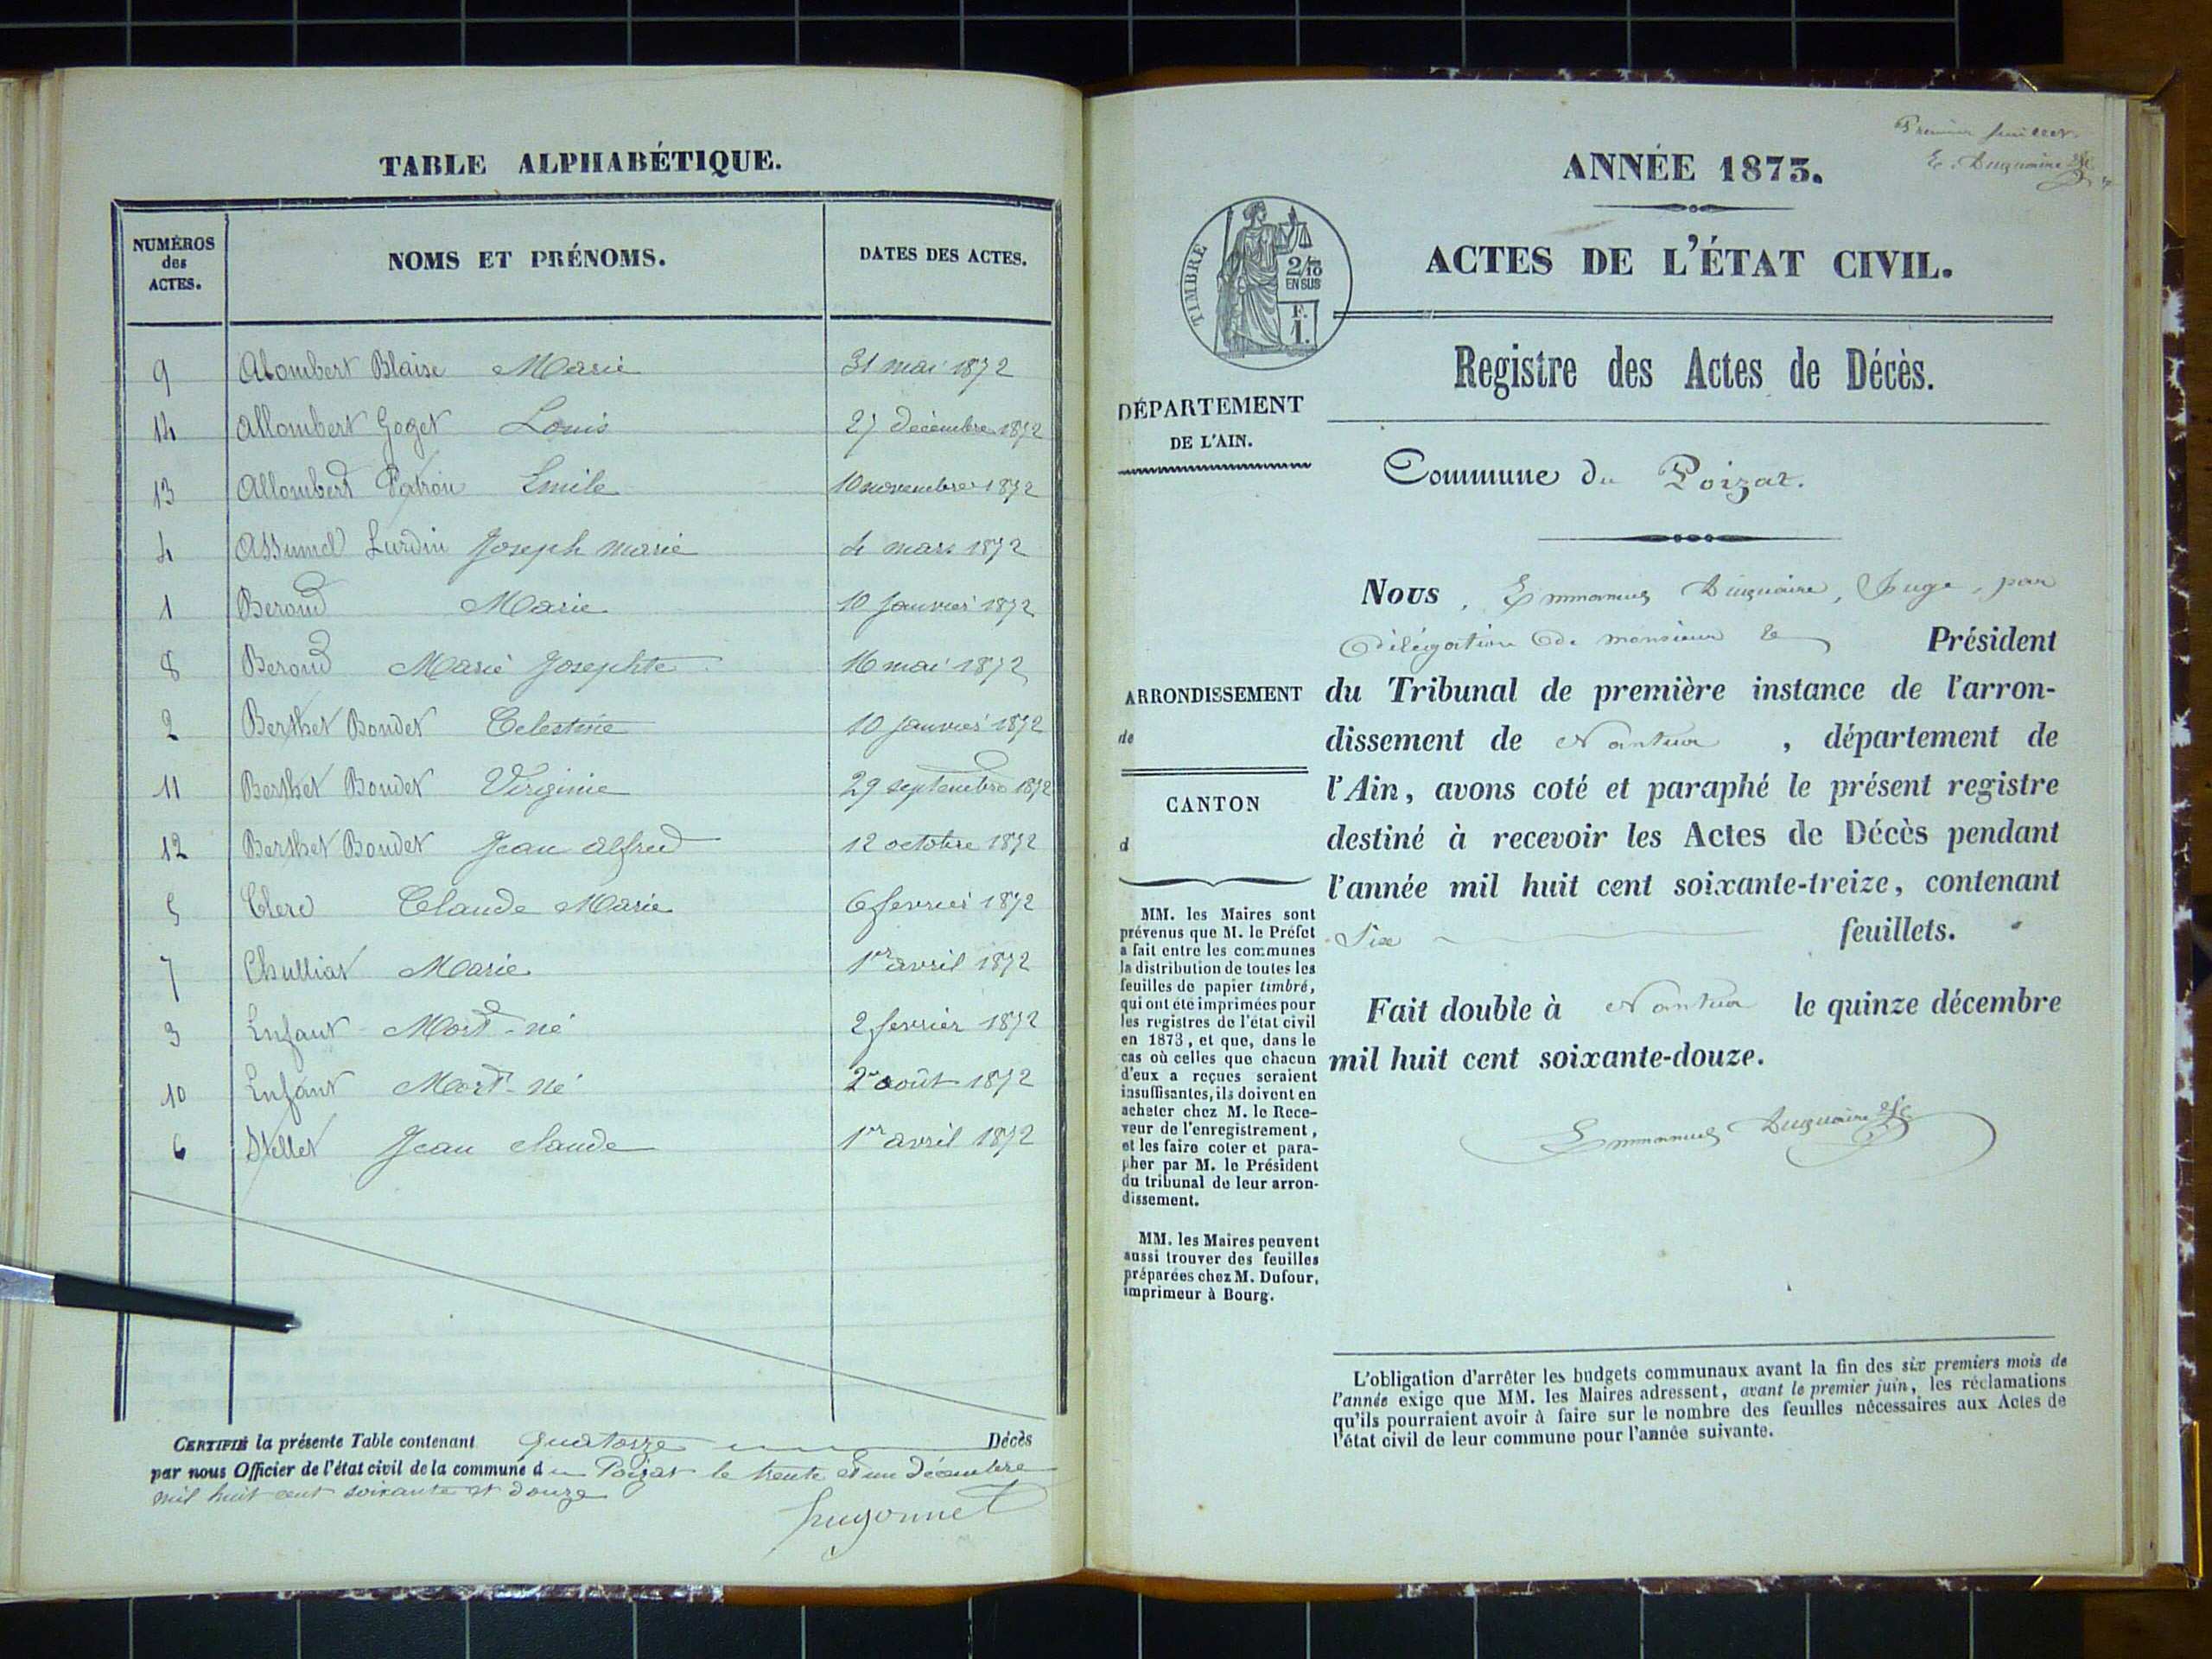 TABLE ALPHABÉTIQUE.
NUMÉROS des ACTES. NOMS ET PRÉNOMS. DATES DES ACTES.
9 Alombert Blaise Marie 31 mai 1872
14 Allombert Goget Louis 27 décembre 1872
13 Allombert Patron Emile 10 novembre 1872
4 Assumel Lurdin Joseph marie 4 mars 1872
1 Beroud Marie 10 Janvier 1872
8 Beroud Marie Josephte 16 mai 1872
2 Berthet Bondet Celestine 10 janvier 1872
11 Berthet Bondet Virginie 29 septembre 1872
12 Berthet Bondet Jean alfred 12 octobre 1872
5 Clerc Claude Marie 6 fevrier 1872
7 Chulliat Marie 1er avril 1872
3 Enfant Mort-né 2 fevrier 1872
10 Enfant Mort-né 2 août 1872
6 Stellet Jean claude 1er avril 1872
CERTIFIÉ la présente Table contenant Quatorze Décès
par nous Officier de l'état civil de la commune du Poizat le trente et un décembre
mil huit cent soixante et douze
hugonnet
Premier feuillet
E. Duquaire
ANNÉE 1873.
ACTES DE L'ÉTAT CIVIL.
TIMBRE
2/10
EN SUS
F.
1.
Registre des Actes de Décès.
DÉPARTEMENT
DE L'AIN.
Commune du Poizat.
Nous, Emmanuel Duquaire, Juge, par
délégation de monsieur le Président
du Tribunal de première instance de l'arron-
dissement de Nantua, département de
l'Ain, avons coté et paraphé le présent registre
destiné à recevoir les Actes de Décès pendant
l'année mil huit cent soixante-treize, contenant
Six feuillets.
Fait double à Nantua le quinze décembre
mil huit cent soixante-douze.
Emmanuel Duquaire
ARRONDISSEMENT
de
CANTON
d
MM. les Maires sont
prévenus que M. le Préfet
a fait entre les communes
la distribution de toutes les
feuilles de papier timbré,
qui ont été imprimées pour
les registres de l'état civil
en 1873, et que, dans le
cas où celles que chacun
d'eux a reçues seraient
insuffisantes, ils doivent en
acheter chez M. le Rece-
veur de l'enregistrement,
et les faire coter et para-
pher par M. le Président
du tribunal de leur arron-
dissement.
MM. les Maires peuvent
aussi trouver des feuilles
préparées chez M. Dufour,
imprimeur à Bourg.
L'obligation d'arrêter les budgets communaux avant la fin des six premiers mois de
l'année exige que MM. les Maires adressent, avant le premier juin, les réclamations
qu'ils pourraient avoir à faire sur le nombre des feuilles nécessaires aux Actes de
l'état civil de leur commune pour l'année suivante.